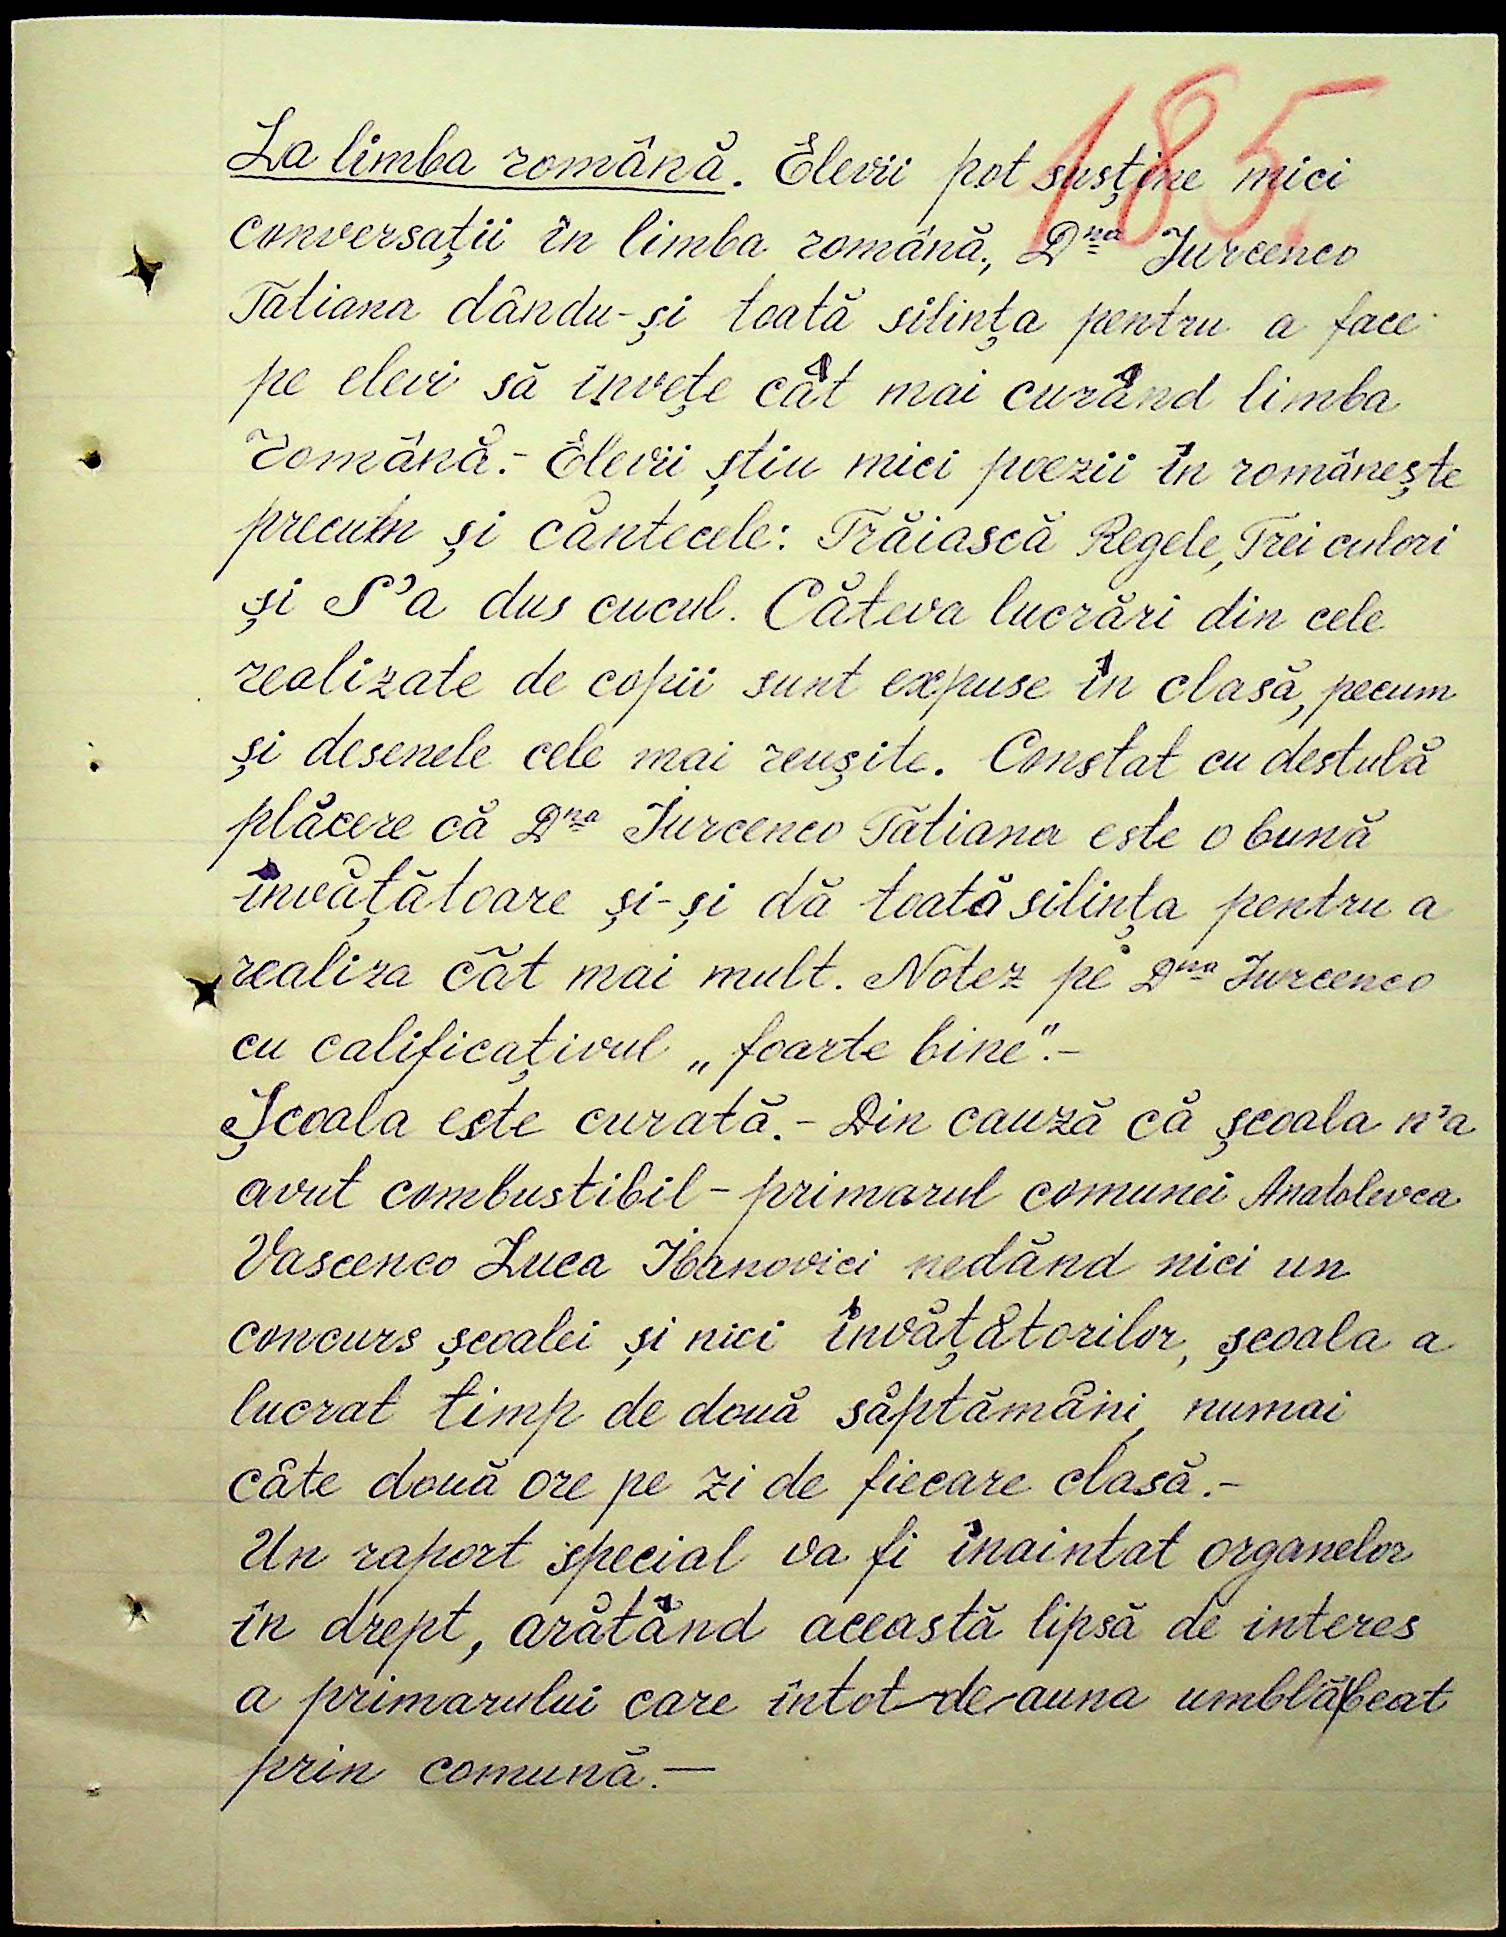 185.
La limba română. Elevii pot susține mici
conversații în limba română, Dna Jurcenco
Tatiana dându-și toată silința pentru a face
pe elevi să învețe cât mai curând limba
română.- Elevii știu mici poezii în românește
precum și cântecele: Trăiască Regele, Trei culori
și S'a dus cucul. Câteva lucrări din cele
realizate de copii sunt expuse în clasă, pecum
și desenele cele mai reușite. Constat cu destulă
plăcere că Dna Jurcenco Tatiana este o bună
învățătoare și-și dă toată silința pentru a
realiza cât mai mult. Notez pe Dna Jurcenco
cu calificațivul „foarte bine".-
Școala este curată.- Din cauză că școala n'a
avut combustibil - primarul comunei Anatolevca
Vascenco Luca Ibanovici nedând nici un
concurs școalei și nici învățătorilor, școala a
lucrat timp de două săptămâni, numai
câte două ore pe zi de fiecare clasă.-
Un raport special va fi înaintat organelor
în drept, arătând această lipsă de interes
a primarului care întot-de-auna umblă beat
prin comună.—